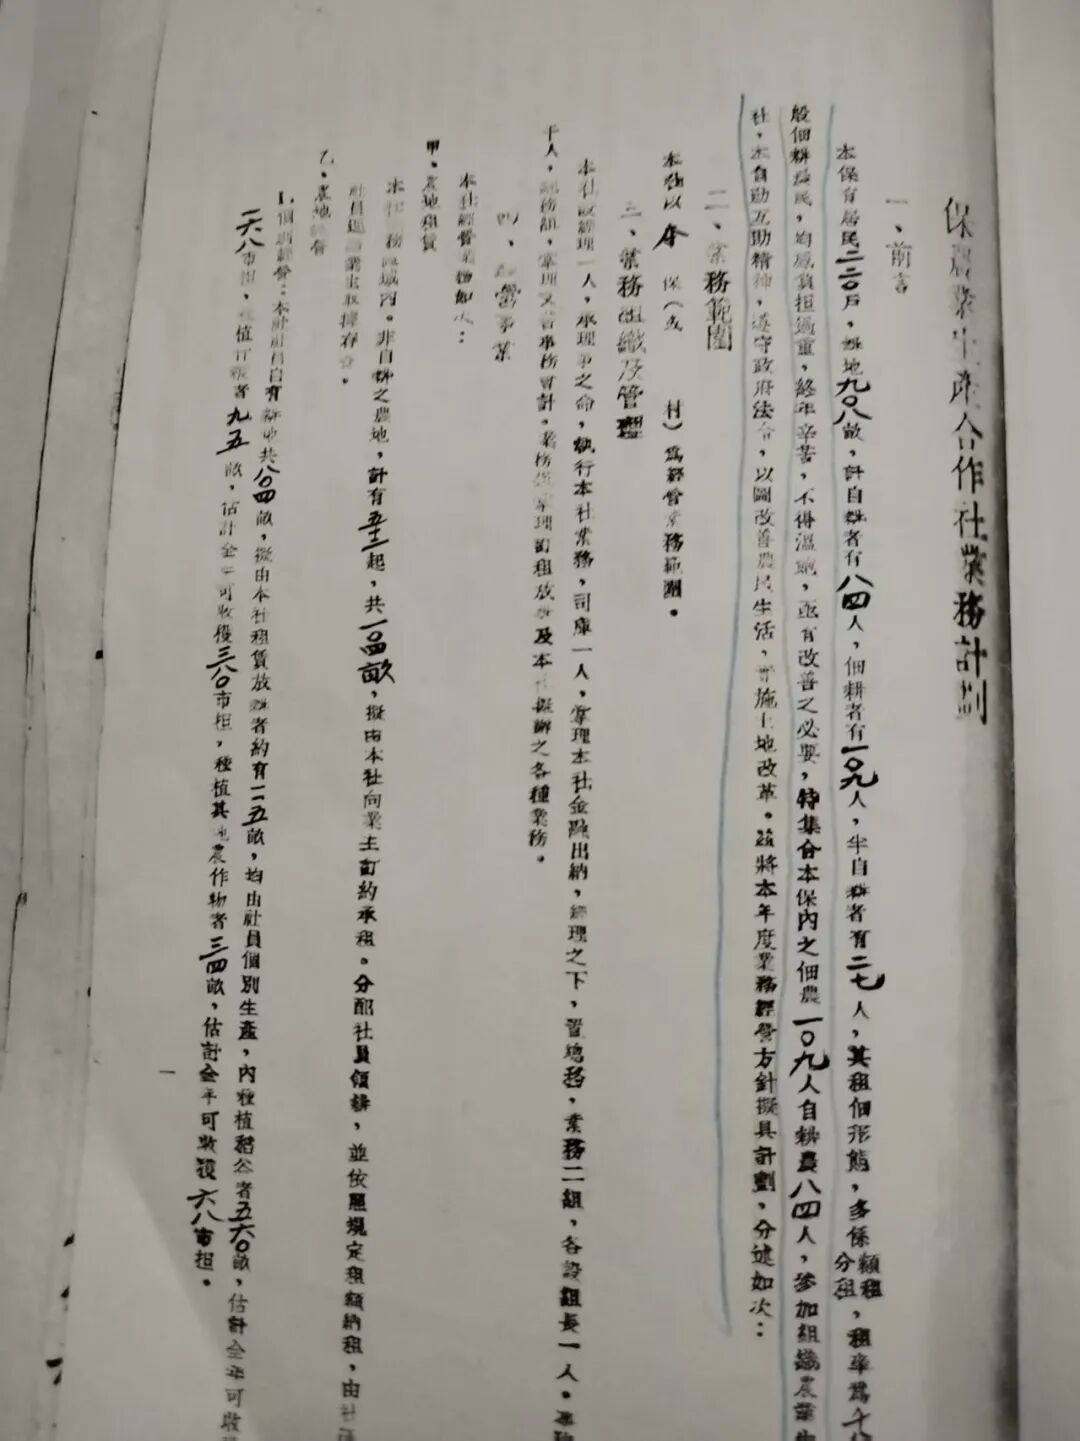 保農業生產合作社業務計劃
一、前言
本保有居民二二〇戶，耕地九〇八畝，計自耕者有八四人，佃耕者有一〇九人，半自耕者有二七人，其租佃形態，多係額租分租，租率爲
般佃耕農民，均感負担過重，終年辛苦，不得溫飽，亟有改善之必要，特集合本保內之佃農一〇九人自耕農八四人，參加組織農業生
社，本自助互助精神，遵守政府法令，以圖改善農民生活，實施土地改革。茲將本年度業務經營方針擬具計劃，分述如次：
二、業務範圍
本社以 本 保（ 村）爲經營業務範圍。
三、業務組織及管理
本社設經理一人，承理事之命，執行本社業務，司庫一人，掌理本社金融出納，經理之下，置總務，業務二組，各設組長一人。
干人，總務組，掌理文書事務會計，業務組掌理訂租放耕及本社擬辦之各種業務。
四、經營事業
本社經營業務如次：
甲、農地租賃
本社業務區域內。非自耕之農地，計有五十二起，共一〇四畝，擬由本社向業主訂約承租。分配社員領耕，並依照規定租額納租，由社
社員逕 業主取據存 。
乙、農地經營
1.個別經營：本社社員自有耕地共八〇四畝，擬由本社租賃放耕者約有一一五畝，均由社員個別生產，內種植稻谷者五六〇畝，估計全年可收
一六八市担，種植 者九五畝，估計全年可收穫三八〇市担，種植其他農作物者三四畝，估計全年可收穫六八市担。
一